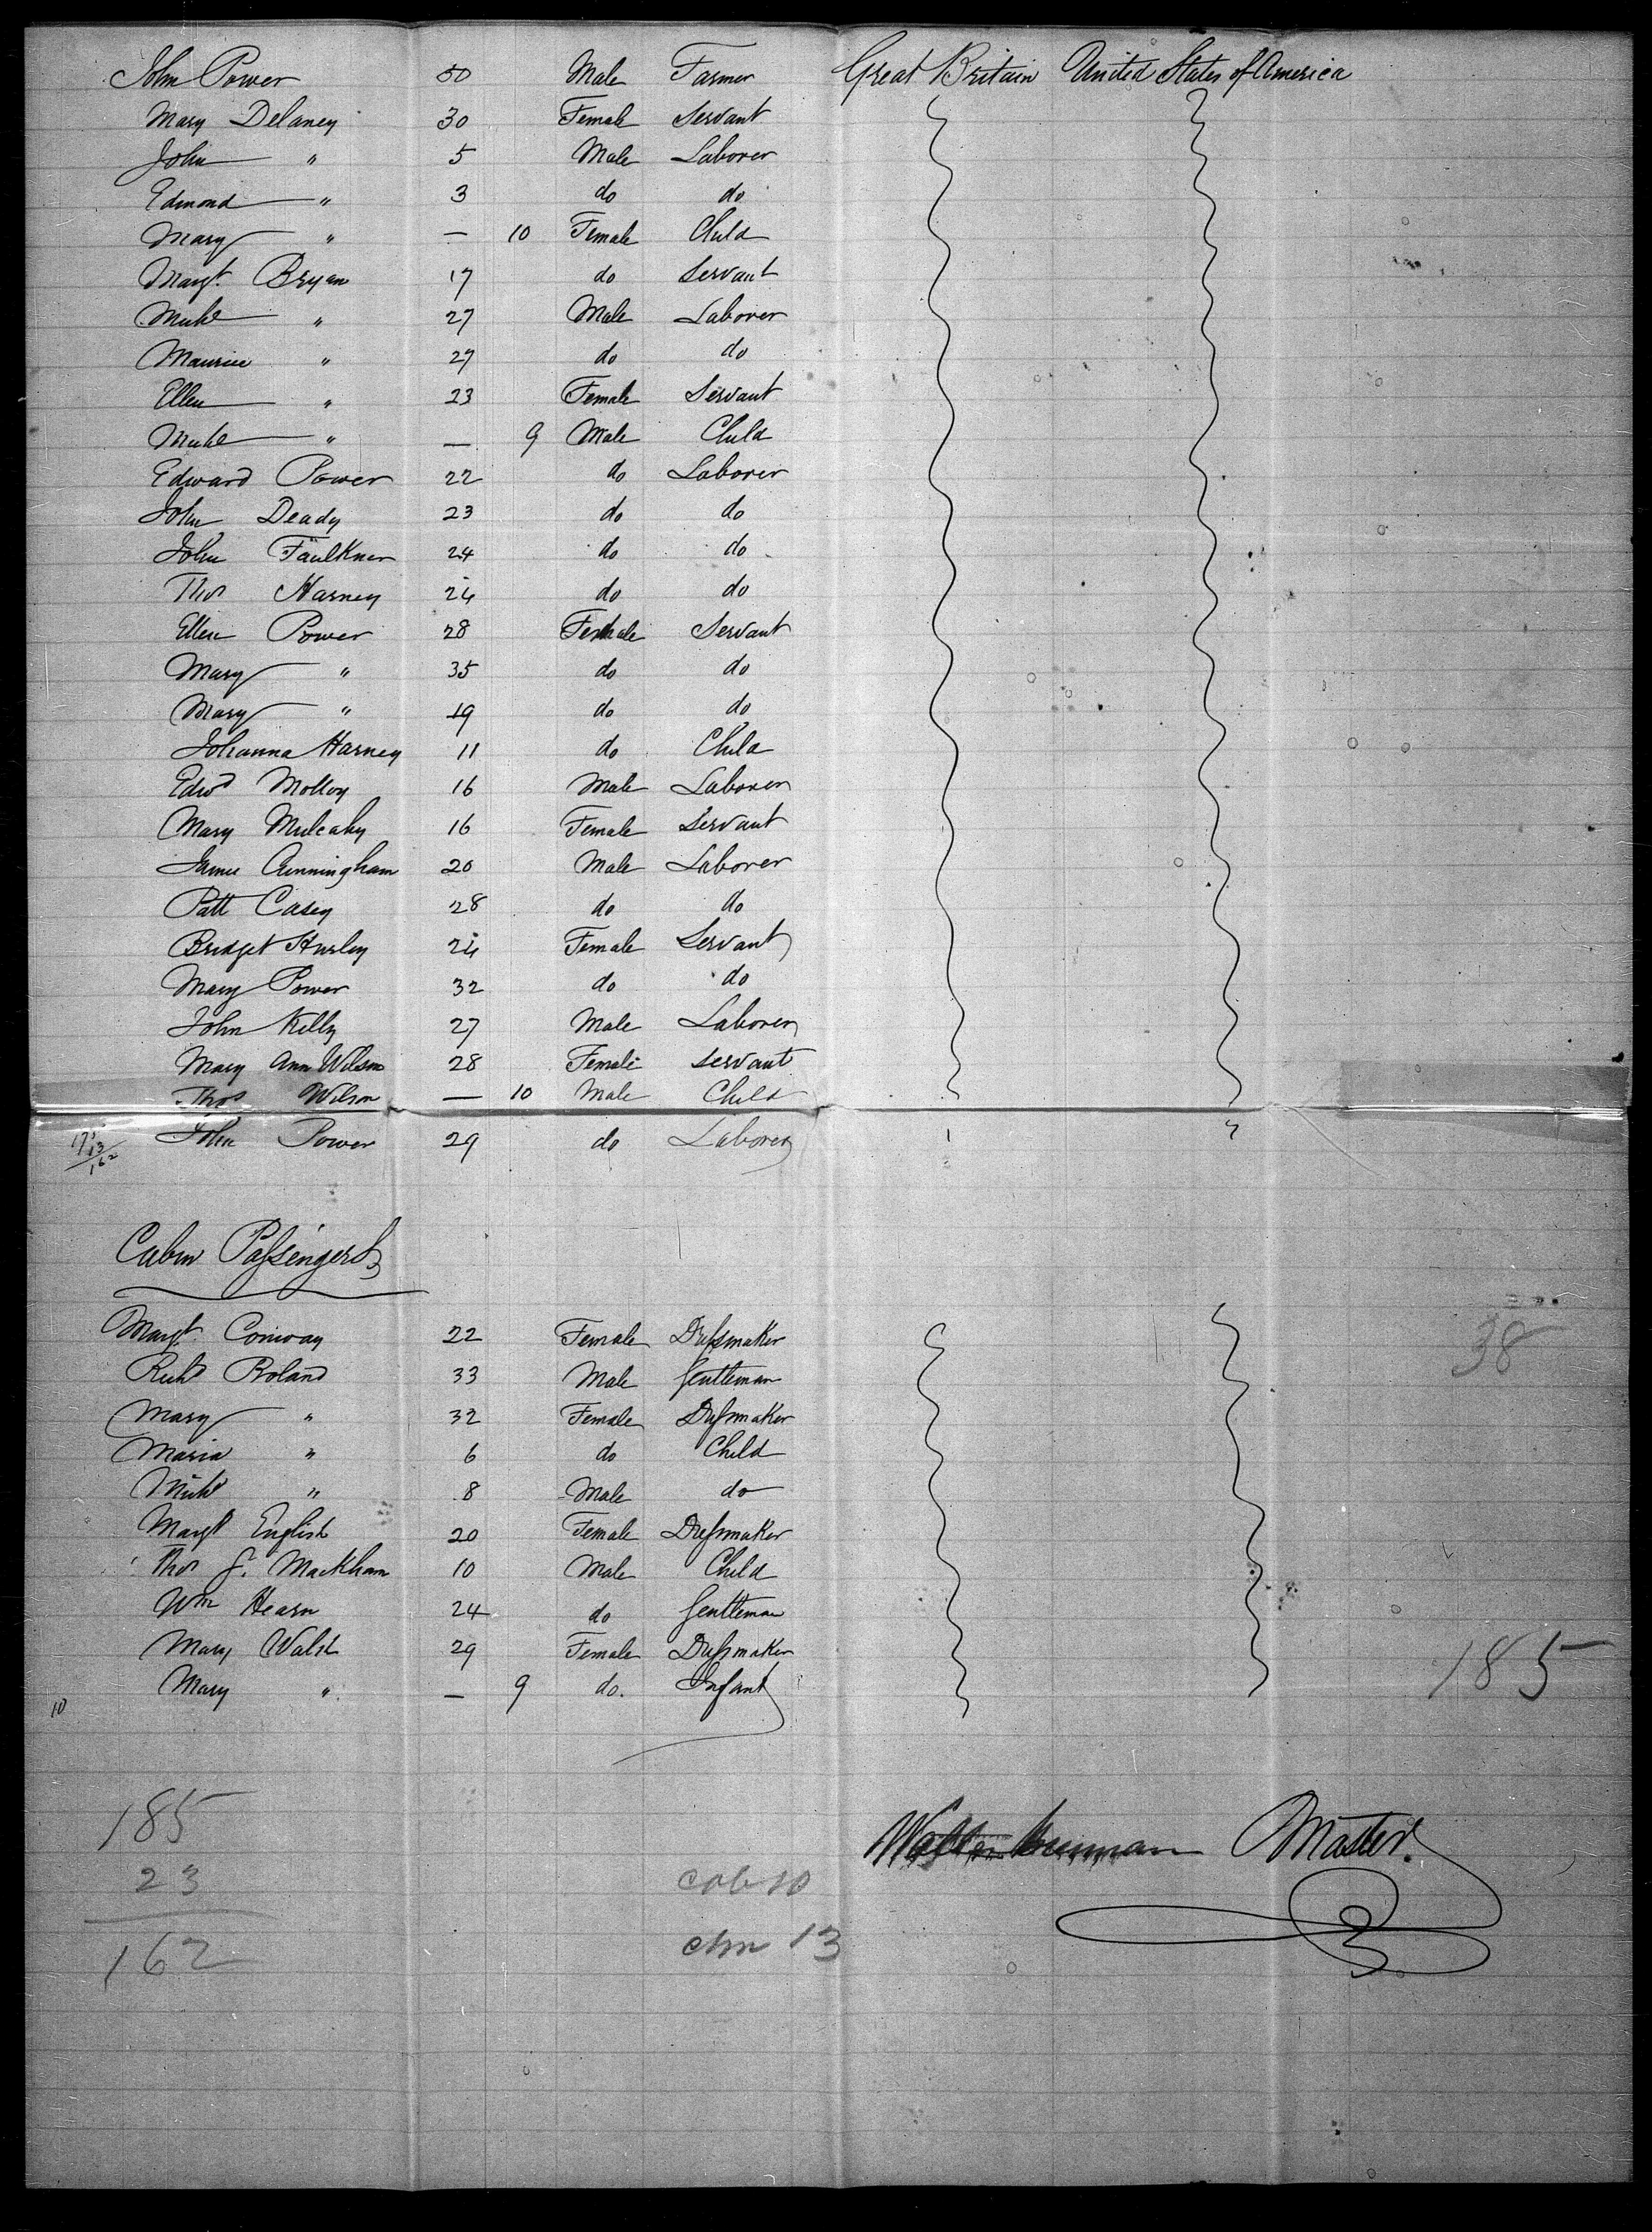 John Power 50 Male Farmer Great Britain United States of America
Mary Delaney 30 Female Servant
John " 5 Male Laborer
Edmond " 3 do do
Mary " — 10 Female Child
Margt. Bryan 17 do Servant
Michl " 27 Male Laborer
Maurice " 27 do do
Ellen " 23 Female Servant
Michl " — 9 Male Child
Edward Power 22 do Laborer
John Deady 23 do do
John Faulkner 24 do do
Thos Harney 24 do do
Ellen Power 28 Female Servant
Mary " 35 do do
Mary " 19 do do
Johanna Harney 11 do Child
Edwd Molloy 16 Male Laborer
Mary Mulcahy 16 Female Servant
James Cunningham 20 Male Laborer
Patt Casey 28 do do
Bridget Hurley 24 Female Servant
Mary Power 32 do do
John Kelly 27 Male Laborer
Mary Ann Wilson 28 Female Servant
Thos Wilson — 10 Male Child
John Power 29 do Laborer
175
13
162
Cabin Passengers
Margt. Conway 22 Female Dressmaker
38
Richd Boland 33 Male Gentleman
Mary " 32 Female Dressmaker
Maria " 6 do Child
Michl " 8 Male do
Margt English 20 Female Dressmaker
Thos J. Mackham 10 Male Child
Wm Hearn 24 do Gentleman
Mary Walsh 29 Female Dressmaker
185
Mary " — 9 do. Infant
10
185
23
162
cab 10
chn 13
Master.